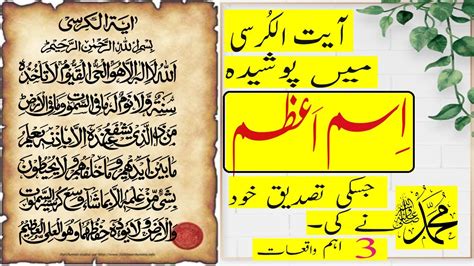 آية الكرسي
بسم الله الرحمن الرحيم
الله لا إله إلا هو الحي القيوم لا تأخذه
سنة ولا نوم له ما في السموات وما في الأرض
من ذا الذي يشفع عنده إلا بإذنه يعلم
ما بين أيديهم وما خلفهم ولا يحيطون
بشيء من علمه إلا بما شاء وسع كرسيه السموات
والأرض ولا يؤده حفظهما وهو العلي العظيم
آیت الکُرسی
میں پوشیدہ
اِسمِ اَعظم
جسکی تصدیق خود
محمد ﷺ
نے کی۔
3 اہم واقعات